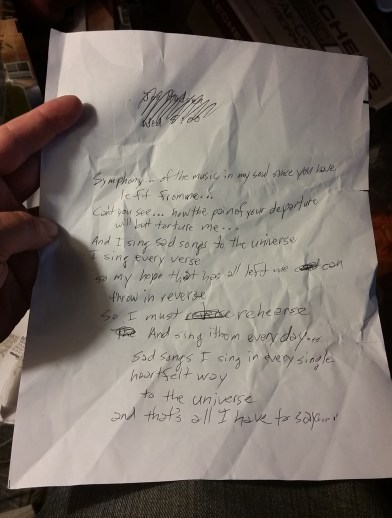 Symphony... of the music in my soul since you have
left from me...
Can't you see... how the pain of your departure
will but torture me...
And I sing sad songs to the universe
I sing every verse
so my hope that has all left we can
throw in reverse
So I must rehearse
And sing them every day...
sad songs I sing in every single
heartfelt way
to the universe
and that's all I have to say......